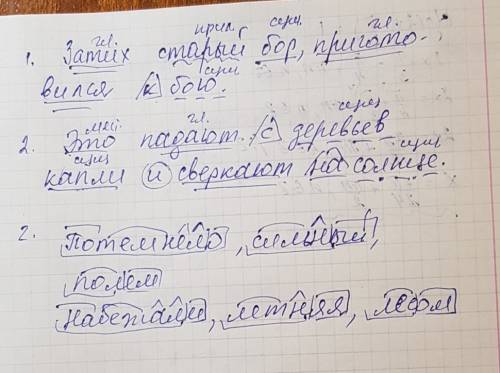 гл. прил. сущ. гл.
1. Затих старый бор, пригото-
сущ
вился к бою.
мест. гл. сущ
2. Это падают с деревьев
сущ сущ
капли и сверкают на солнце.
2. Потемнело, сильный,
полем
Набежали, летняя, лесом